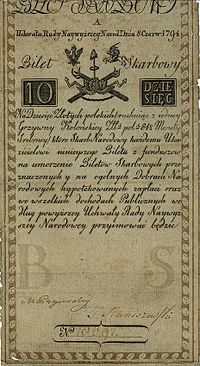 A
Uchwała Rady Naywyższey Narod. Dnia 8 Czerw: 1794
Bilet Skarbowy
10 DZIE
SIĘĆ
Na Dziesięć Złotych polskich rachuiąc z iedney
Grzywny Kolońskiey Złt: pol: 84½ Monety
Srebrney, ktore Skarb Narodowy każdemu Oka-
zicielowi ninieyszego Biletu z funduszow
na umorzenie Biletów Skarbowych prze-
znaczonych y na ogolnych Dobrach Na-
rodowych hypotekowanych zapłaci oraz
we wszelkich dochodach Publicznych we-
dług powyższey Uchwały Rady Naywyż-
szey Narodowey przyimować będzie
B
Staniszewski
No